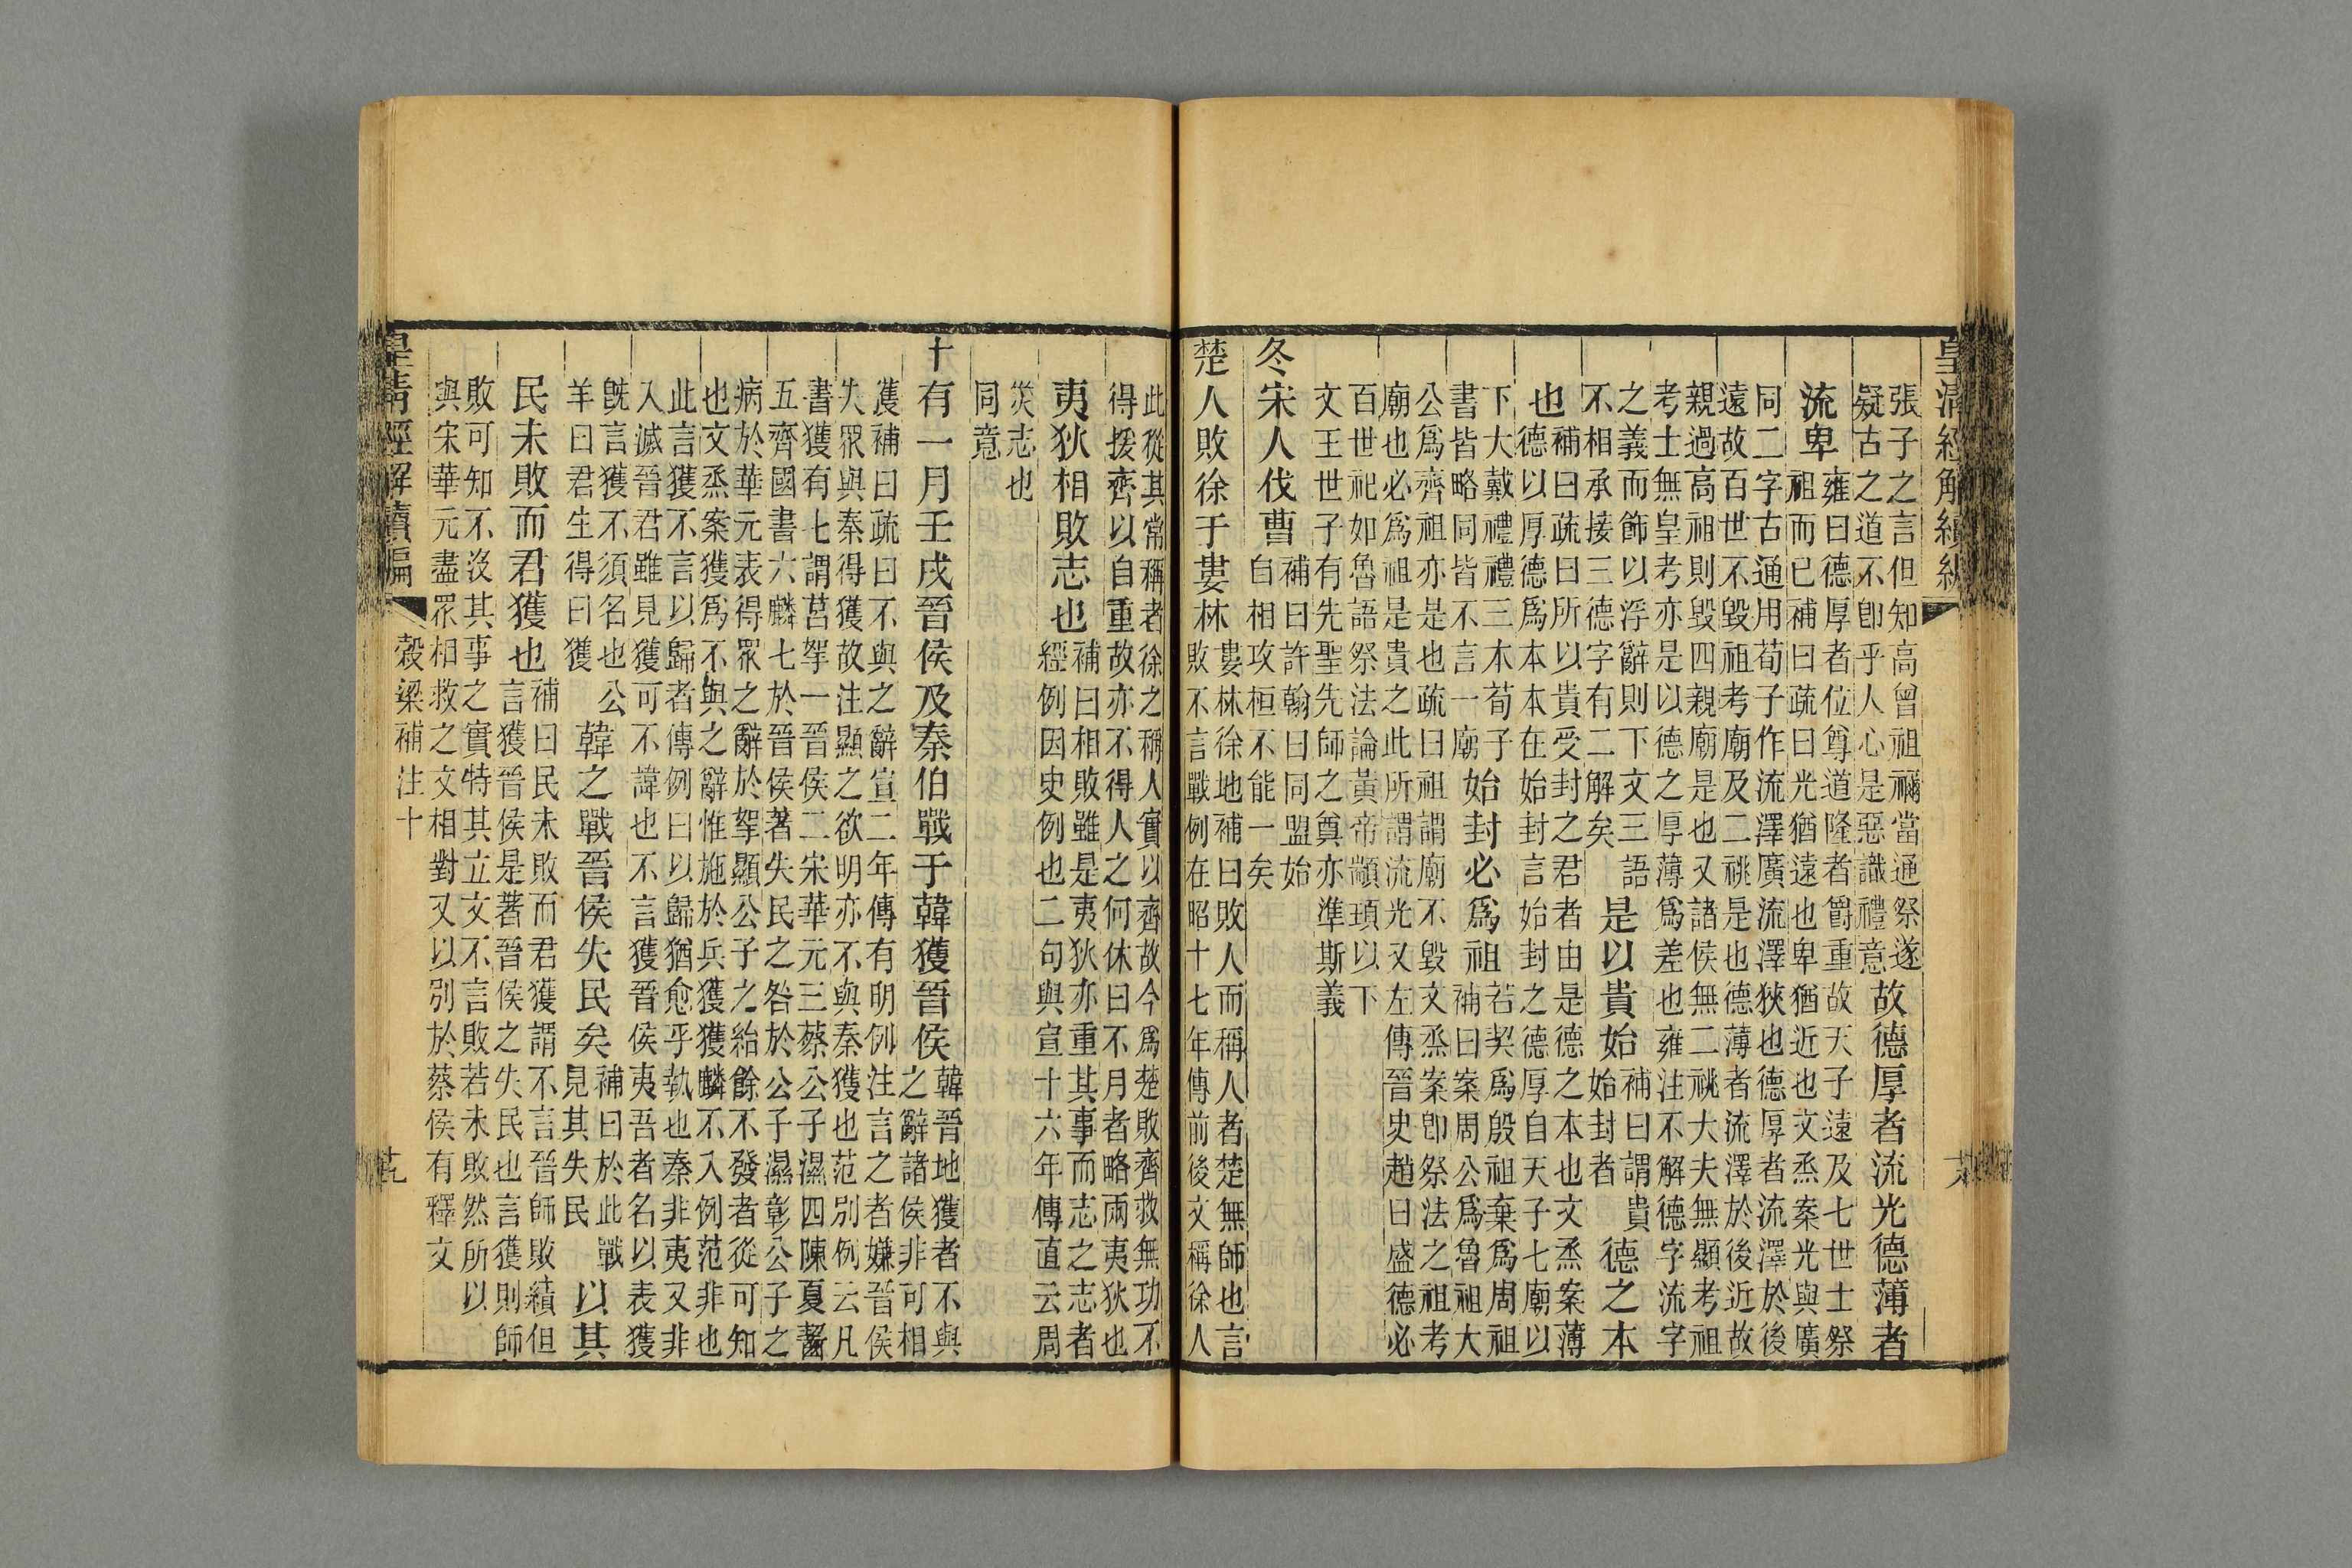 皇清經解續編
張子之言但知高曾祖禰當通祭遂
疑古之道不卽乎人心是惡識禮意
故德厚者流光德薄者
流卑
雍曰德厚者位尊道隆者爵重故天子遠及七世士祭
祖而已補曰疏曰光猶遠也卑猶近也文烝案光與廣
同二字古通用荀子作流澤廣流澤狹也德厚者流澤於後
遠故百世不毀祖考廟及二祧是也德薄者流澤於後近故
親過高祖則毀四親廟是也又諸侯無二祧大夫無顯考祖
考士無皇考亦是以德之厚薄爲差也雍注不解德字流字
之義而飾以浮辭則下文三語
不相承接三德字有二解矣
是以貴始
補曰謂貴
始封者
德之本
也
補曰疏曰所以貴受封之君者由是德之本也文烝案薄
德以厚德爲本本在始封言始封之德厚自天子七廟以
下大戴禮禮三本荀子
書皆略同皆不言一廟
始封必爲祖
若契爲殷祖棄爲周祖
補曰案周公爲魯祖大
公爲齊祖亦是也疏曰祖謂廟不毀文烝案卽祭法之祖考
廟也必爲祖是貴之此所謂流光又左傳晉史趙曰盛德必
百世祀如魯語祭法論黃帝顓頊以下
文王世子有先聖先師之奠亦準斯義
冬宋人伐曹
補曰許翰曰同盟始
自相攻桓不能一矣
楚人敗徐于婁林
婁林徐地補曰敗人而稱人者楚無師也言
敗不言戰例在昭十七年傳前後文稱徐人
此從其常稱者徐之稱人實以齊故今爲楚敗齊救無功不
得援齊以自重故亦不得人之何休曰不月者略兩夷狄也
夷狄相敗志也
補曰相敗雖是夷狄亦重其事而志之志者
經例因史例也二句與宣十六年傳直云周
災志也
同意
十有一月壬戌晉侯及秦伯戰于韓獲晉侯
韓晉地獲者不與
之辭諸侯非可相
獲補曰疏曰不與之辭宣二年傳有明例注言之者嫌晉侯
失眾與秦得獲故注顯之欲明亦不與秦獲也范別例云凡
書獲有七謂莒挐一晉侯二宋華元三蔡公子濕四陳夏齧
五齊國書六麟七於晉侯著失民之咎於公子濕彰公子之
病於華元表得眾之辭於挐顯公子之紿餘不發者從可知
也文烝案獲爲不與之辭惟施於兵獲獲麟不入例范非也
此言獲不言以歸者傳例曰以歸猶愈乎執也秦非夷又非
入滅晉君雖見獲可不諱也不言獲晉侯夷吾者名以表獲
旣言獲不須名也公
羊曰君生得曰獲
韓之戰晉侯失民矣
補曰於此戰
見其失民
以其
民未敗而君獲也
補曰民未敗而君獲謂不言晉師敗績但
言獲晉侯是著晉侯之失民也言獲則師
敗可知不沒其事之實特其立文不言敗若未敗然所以
與宋華元盡眾相救之文相對又以別於蔡侯有釋文
皇清經解續編
穀梁補注十